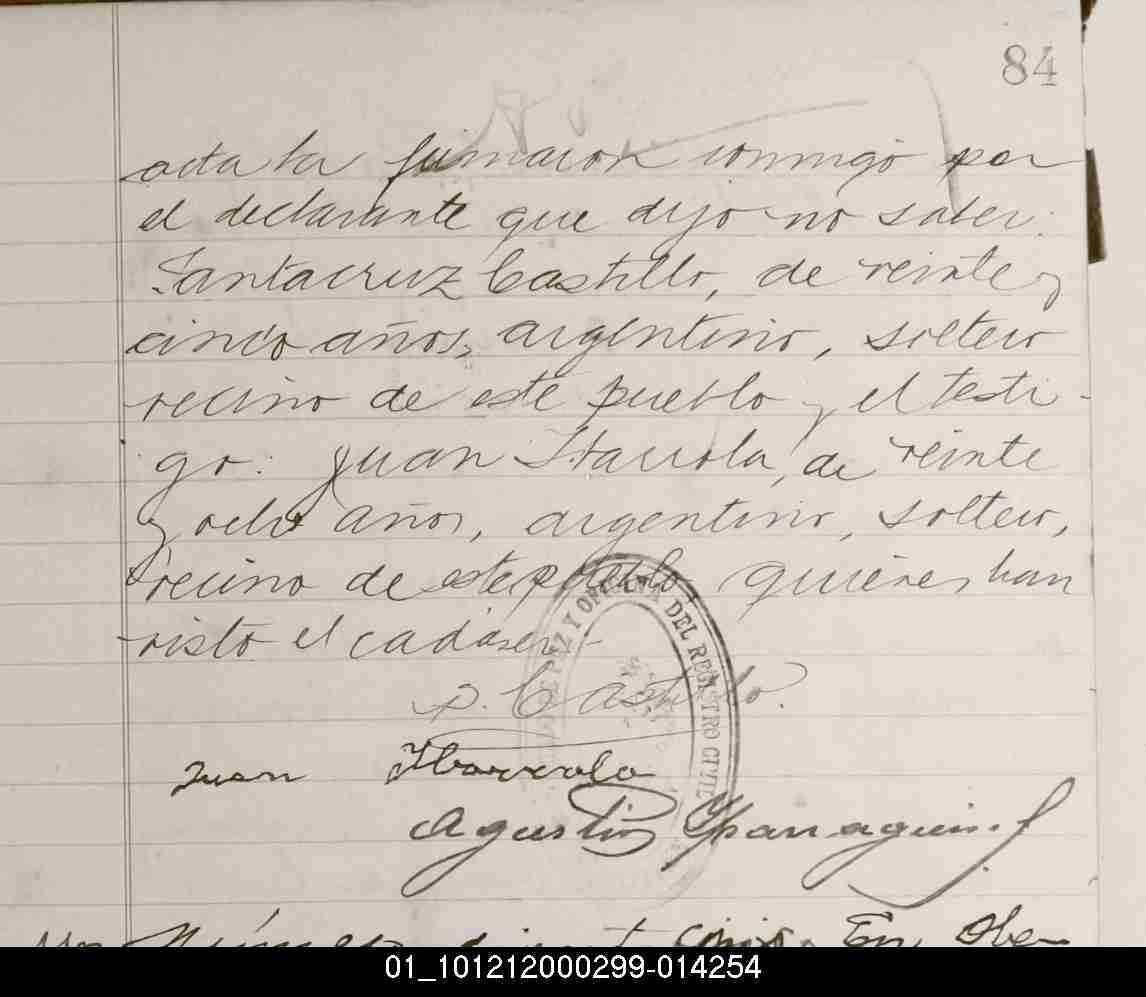 84
acta la firmaron conmigo por
el declarante que dijo no saber:
Santacruz Castillo, de veinte y
cinco años, argentino, soltero
vecino de este pueblo y el testi-
go: Juan Ibarrola, de veinte
y ocho años, argentino, soltero,
vecino de este pueblo quienes han
visto el cadáver-
S. Castillo.
Juan Ibarrola
Agustin Yparraguirre
DE PAZ Y OFICINA DEL REGISTRO CIVIL
Número En Obe-
01_101212000299-014254